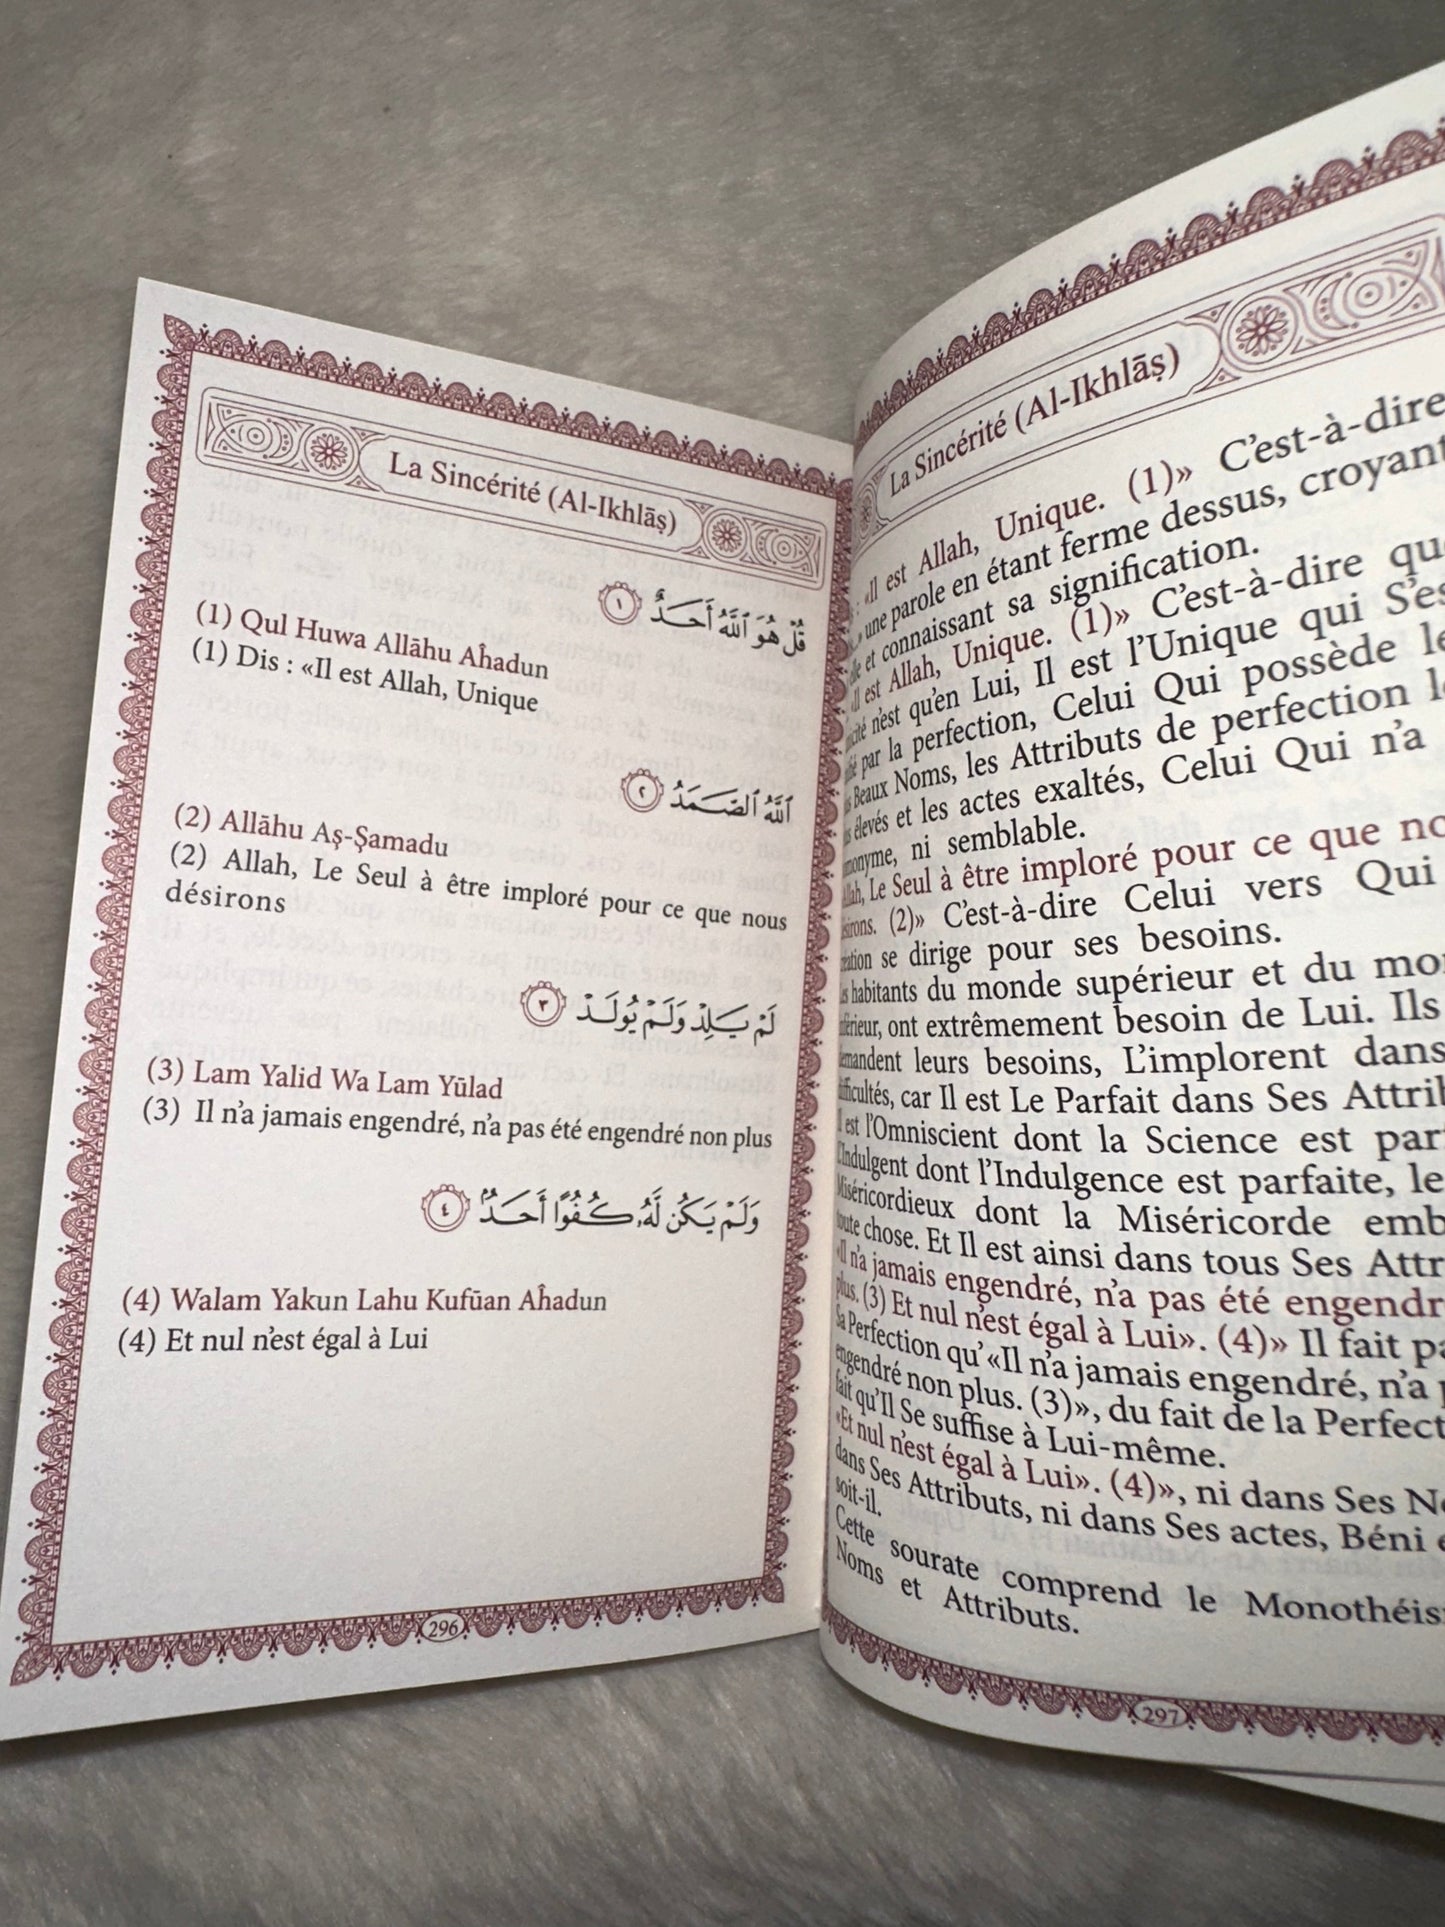 La Sincérité (Al-Ikhlāṣ)
قُلْ هُوَ ٱللَّهُ أَحَدٌ ١
(1) Qul Huwa Allāhu Aĥadun
(1) Dis : «Il est Allah, Unique
ٱللَّهُ ٱلصَّمَدُ ٢
(2) Allāhu Aş-Şamadu
(2) Allah, Le Seul à être imploré pour ce que nous
désirons
لَمْ يَلِدْ وَلَمْ يُولَدْ ٣
(3) Lam Yalid Wa Lam Yūlad
(3) Il n’a jamais engendré, n’a pas été engendré non plus
وَلَمْ يَكُن لَّهُۥ كُفُوًا أَحَدٌۢ ٤
(4) Walam Yakun Lahu Kufūan Aĥadun
(4) Et nul n’est égal à Lui
296
La Sincérité (Al-Ikhlāṣ)
: «Il est Allah, Unique. (1)» C’est-à-dire
» une parole en étant ferme dessus, croyant
et connaissant sa signification.
«Il est Allah, Unique. (1)» C’est-à-dire
n’est qu’en Lui, Il est l’Unique qui
par la perfection, Celui Qui possède
Beaux Noms, les Attributs de perfection
élevés et les actes exaltés, Celui Qui n’a
ni semblable.
Le Seul à être imploré pour ce que
(2)» C’est-à-dire Celui vers Qui
se dirige pour ses besoins.
habitants du monde supérieur et du
ont extrêmement besoin de Lui. Ils
leurs besoins, L’implorent dans
car Il est Le Parfait dans Ses
est l’Omniscient dont la Science est
L’Indulgent dont l’Indulgence est parfaite, le
Miséricordieux dont la Miséricorde
toute chose. Et Il est ainsi dans tous Ses
«Il n’a jamais engendré, n’a pas été
plus. (3) Et nul n’est égal à Lui». (4)» Il fait
Sa Perfection qu’«Il n’a jamais engendré, n’a
engendré non plus. (3)», du fait de la
fait qu’Il Se suffise à Lui-même.
«Et nul n’est égal à Lui». (4)», ni dans Ses
dans Ses Attributs, ni dans Ses actes, Béni
soit-il.
Cette sourate comprend le
Noms et Attributs.
297